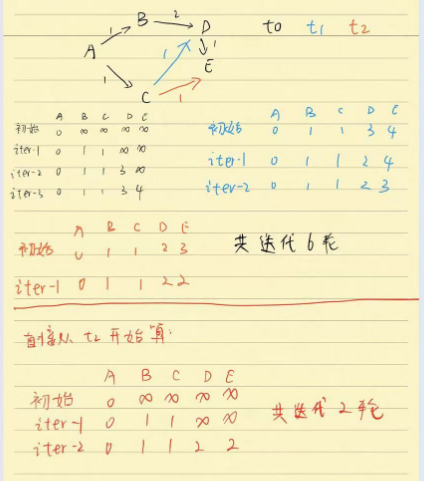 1 B 2 D t0 t1 t2
A 1 1 1 E
C 1
A B C D E
初始 0 ∞ ∞ ∞ ∞
iter-1 0 1 1 ∞ ∞
iter-2 0 1 1 3 ∞
iter-3 0 1 1 3 4
A B C D E
初始 0 1 1 3 4
iter-1 0 1 1 2 4
iter-2 0 1 1 2 3
A B C D E
初始 0 1 1 2 3
iter-1 0 1 1 2 2
共迭代6轮
直接从t2开始算:
A B C D E
初始 0 ∞ ∞ ∞ ∞
iter-1 0 1 1 ∞ ∞
iter-2 0 1 1 2 2
共迭代2轮